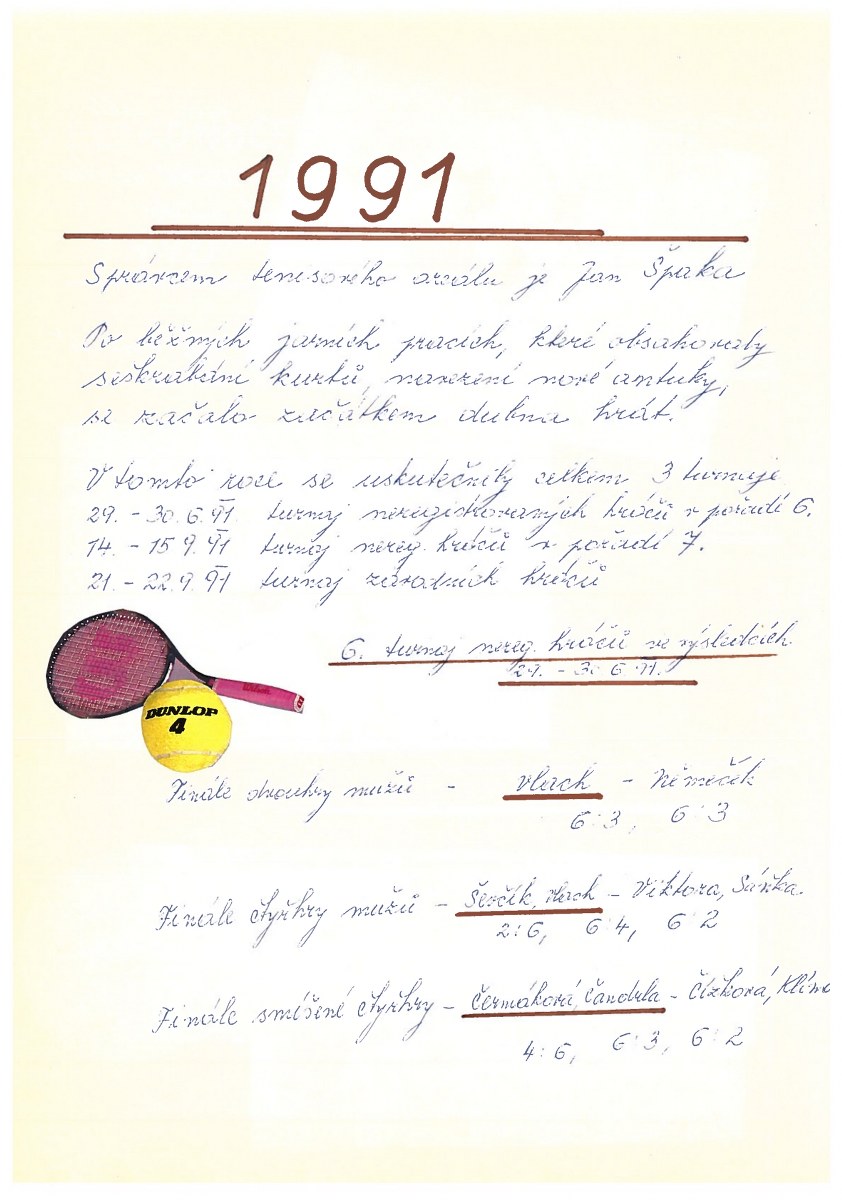 1991
Správcem tenisového areálu je Jan Špaka
Po běžných jarních pracích, které obsahovaly
seškrabání kurtů, navezení nové antuky,
se začalo začátkem dubna hrát.
V tomto roce se uskutečnily celkem 3 turnaje
29. - 30. 6. 91 turnaj neregistrovaných hráčů v pořadí 6.
14. - 15 9. 91 turnaj nereg. hráčů v pořadí 7.
21. - 22. 9. 91 turnaj závodních hráčů
6. turnaj nereg. hráčů ve výsledcích
29. - 30 6. 91.
DUNLOP
4
Finále dvouhry mužů - Vlach - Němeček
6:3, 6:3
Finále čtyřhry mužů - Ševčík, Vlach - Viktora, Sáňka
2:6, 6:4, 6:2
Finále smíšené čtyřhry - Čermáková, Čandrla - Čížková,
4:6, 6:3, 6:2